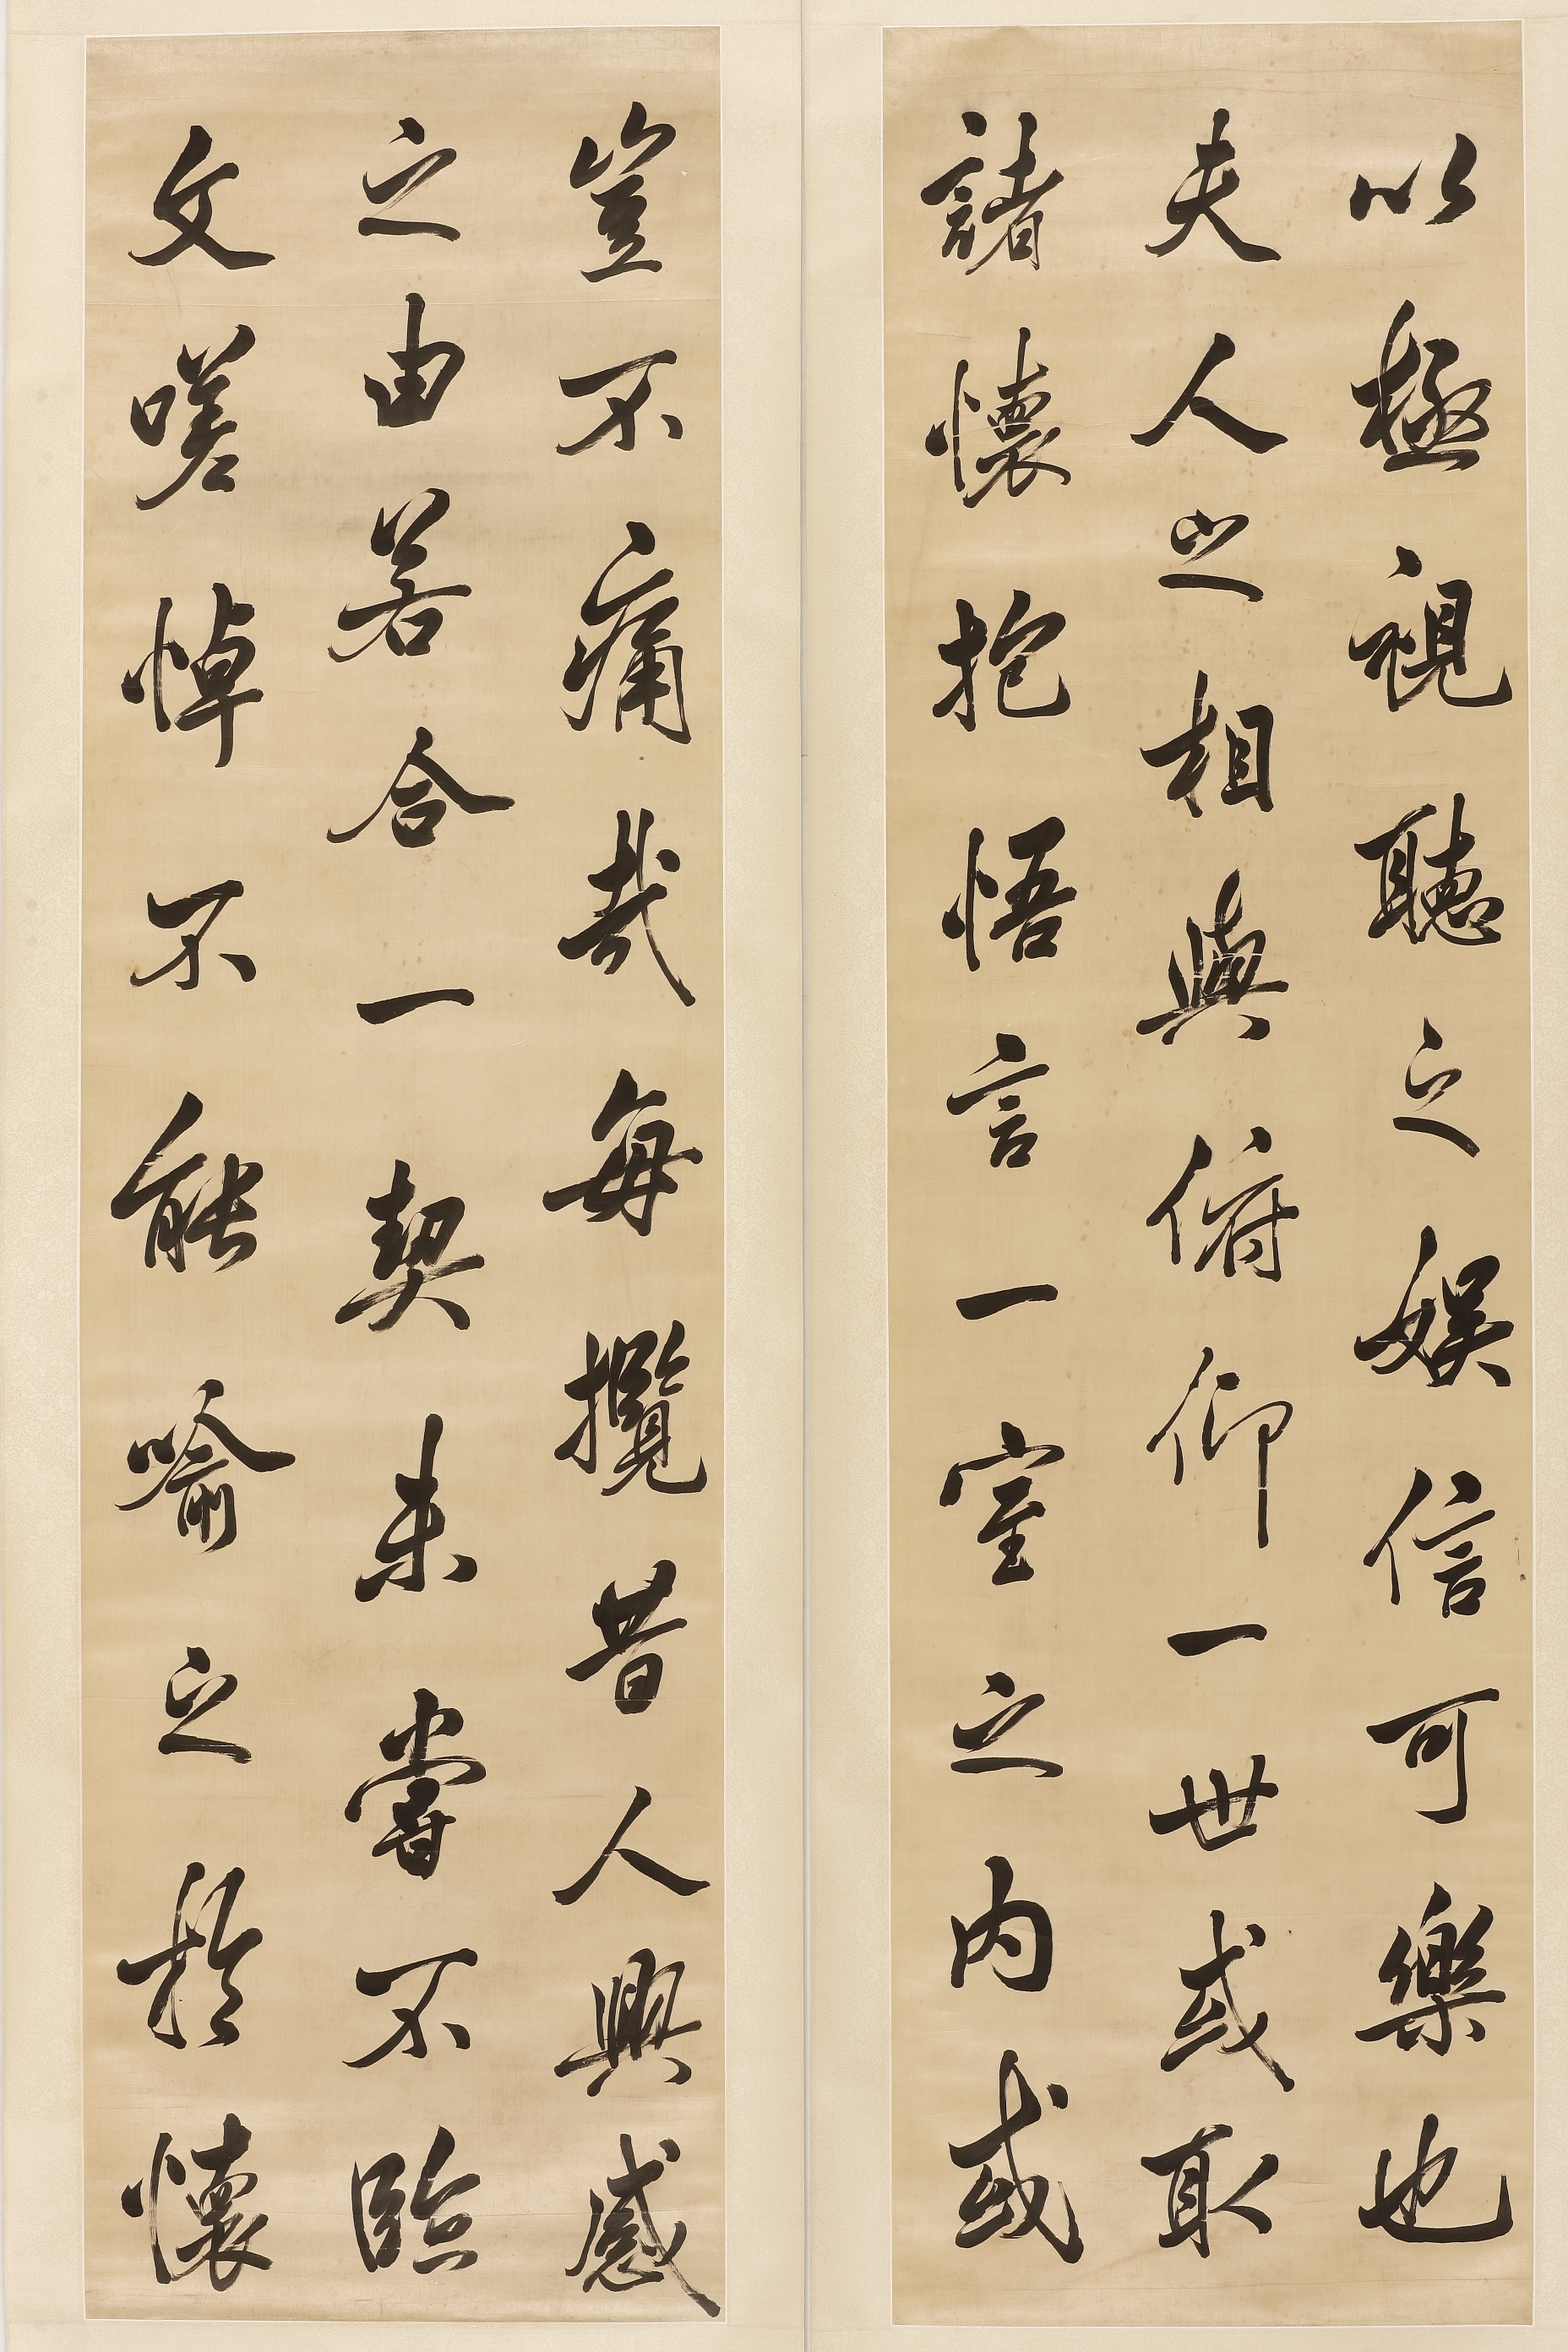 以極視聽之娛信可樂也
夫人之相與俯仰一世或取
諸懷抱悟言一室之內或
豈不痛哉每攬昔人興感
之由若合一契未嘗不臨
文嗟悼不能喻之於懷